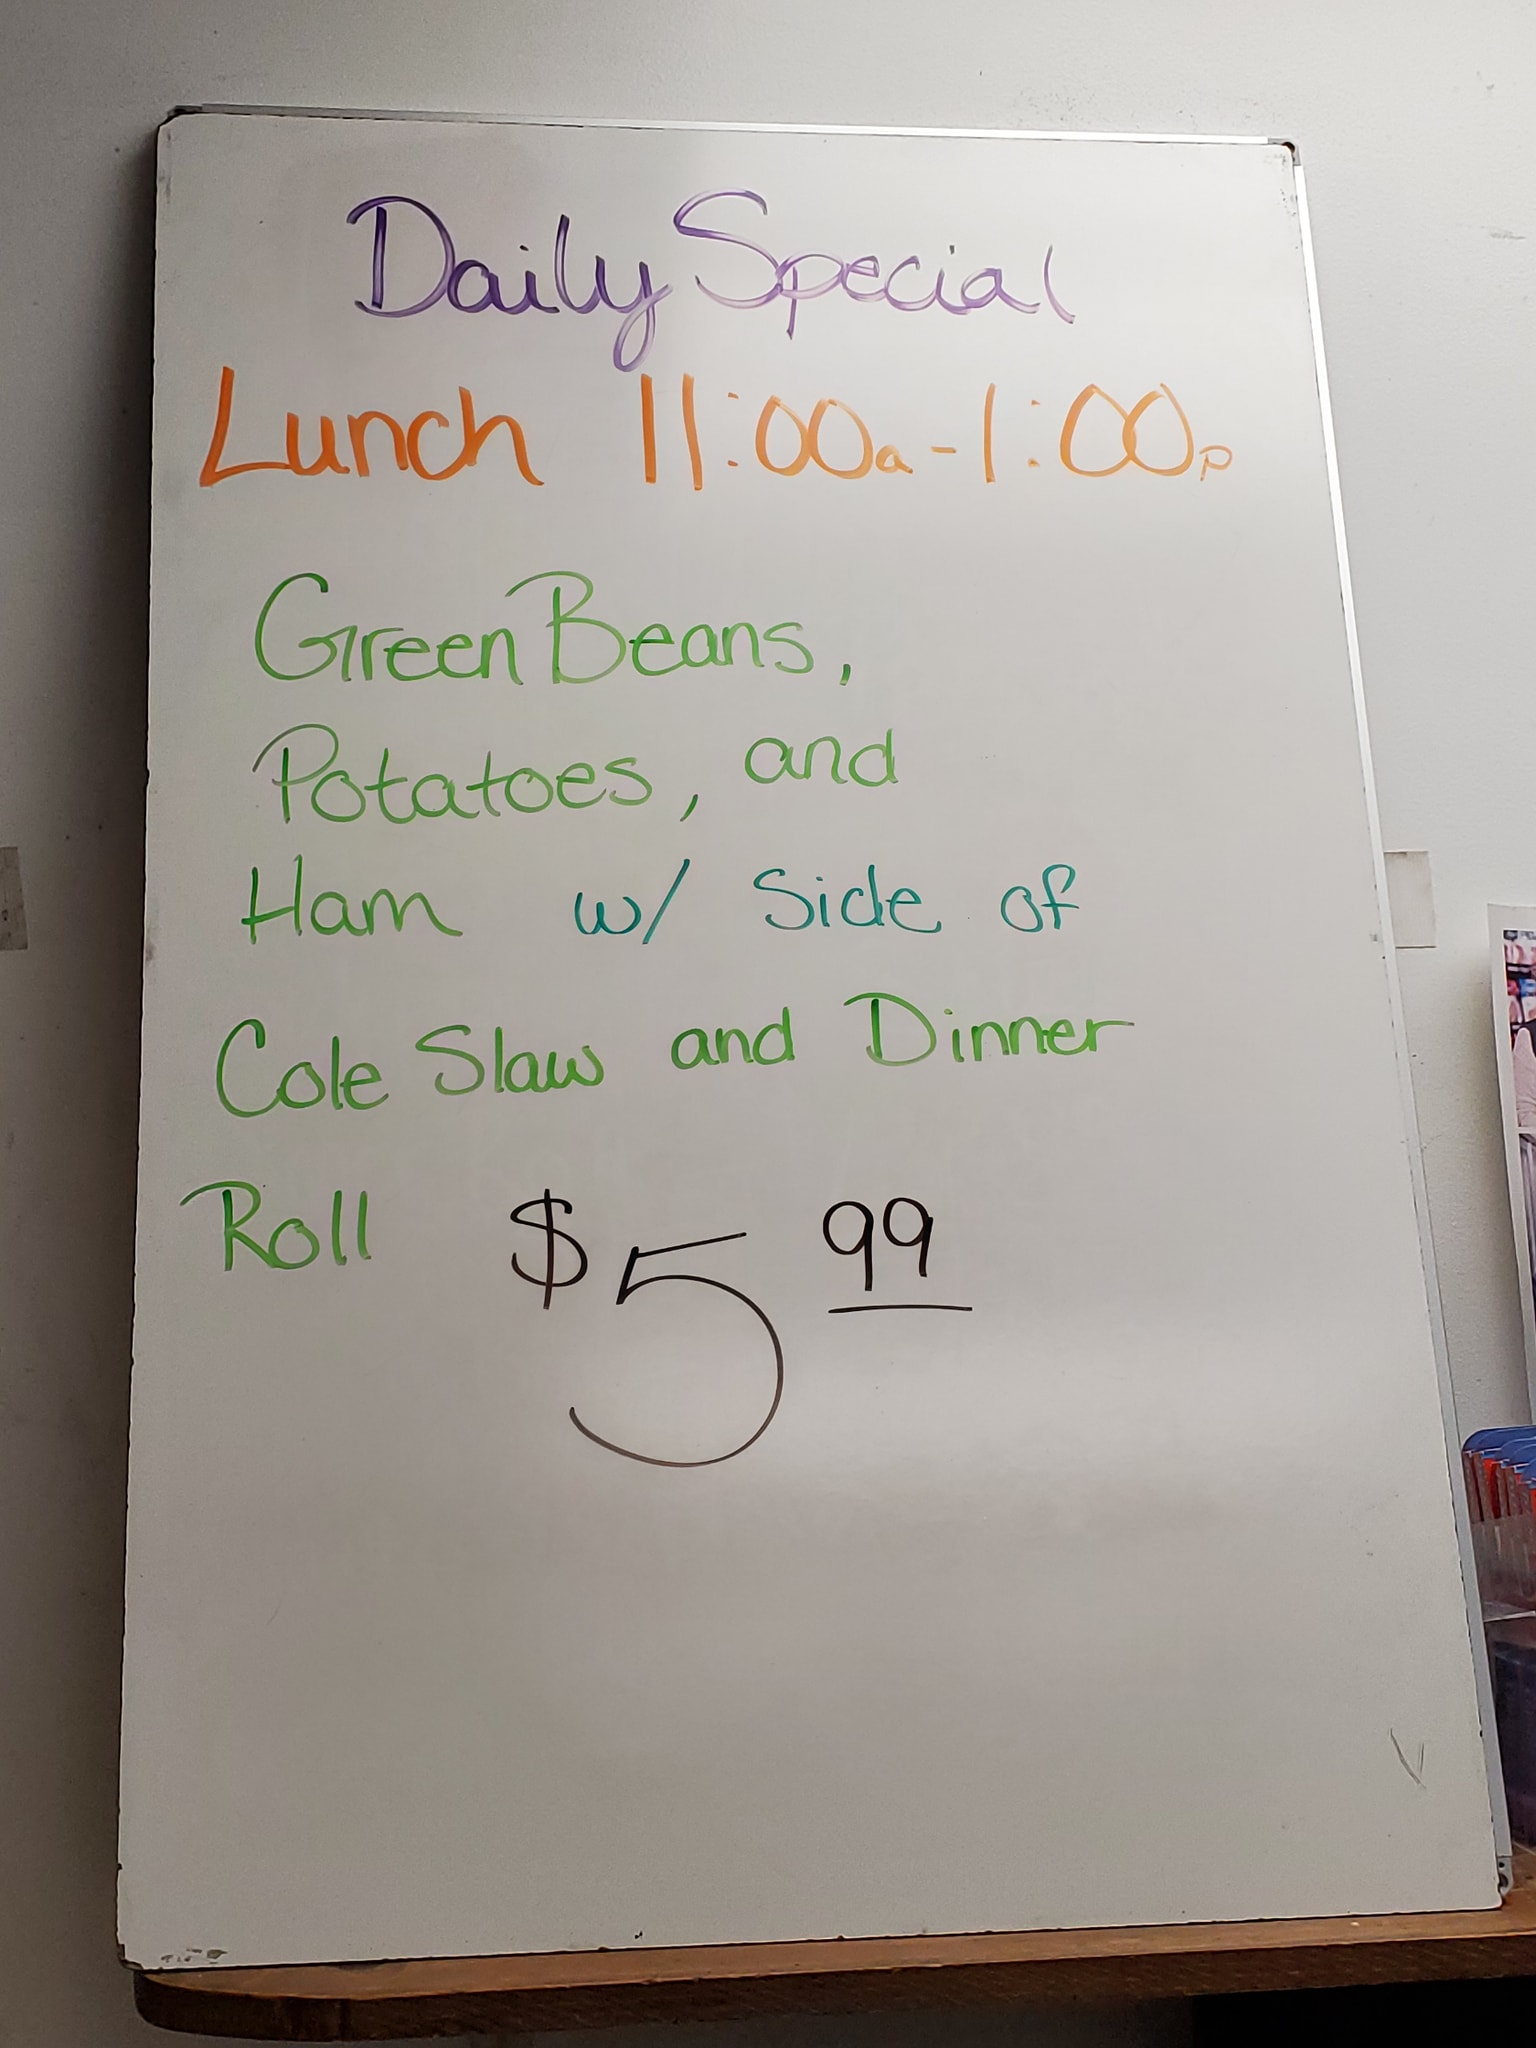 Daily Special
Lunch 11:00a-1:00p
Green Beans,
Potatoes, and
Ham w/ Side of
Cole Slaw and Dinner
Roll $5 99